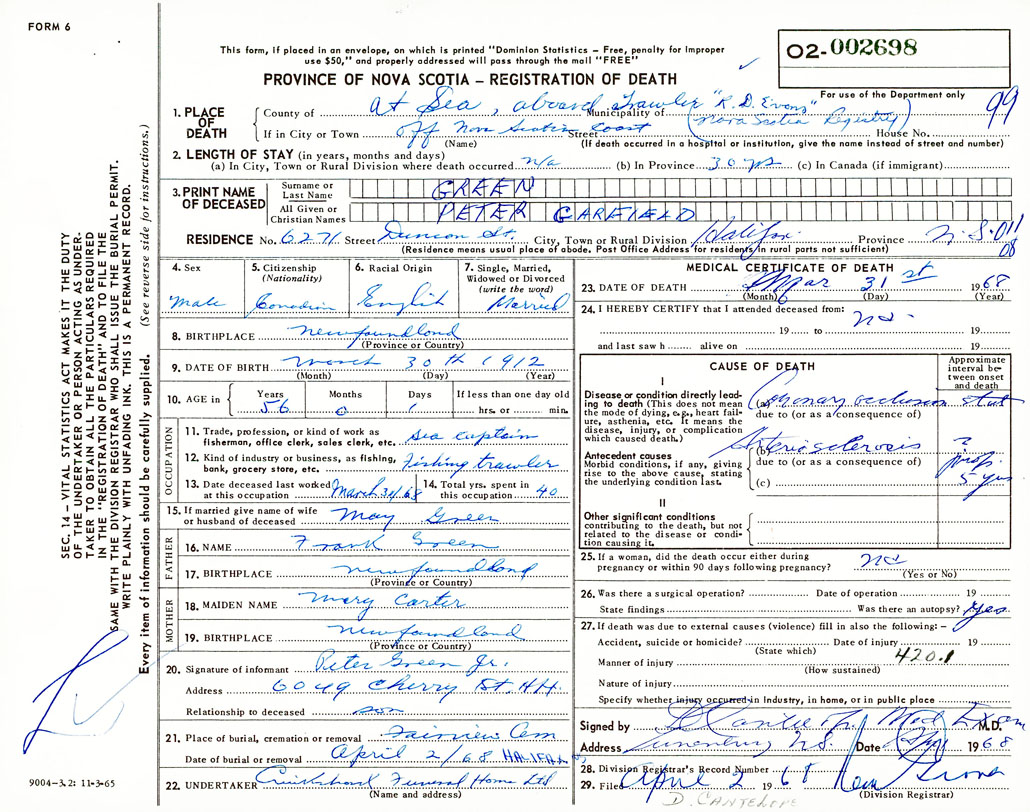 FORM 6
This form, if placed in an envelope, on which is printed "Dominion Statistics – Free, penalty for improper
use $50," and properly addressed will pass through the mail "FREE"
PROVINCE OF NOVA SCOTIA – REGISTRATION OF DEATH
O2-002698
For use of the Department only
99
1. PLACE OF DEATH
County of At Sea, aboard Trawler "R. D. Evans" Municipality of (Nova Scotia Registry)
If in City or Town off Nova Scotia Coast Street House No.
(Name) (If death occurred in a hospital or institution, give the name instead of street and number)
2. LENGTH OF STAY (in years, months and days)
(a) In City, Town or Rural Division where death occurred. n/a (b) In Province 30 yrs (c) In Canada (if immigrant)
3. PRINT NAME OF DECEASED
Surname or Last Name GREEN
All Given or Christian Names PETER GARFIELD
RESIDENCE No. 6271 Street City, Town or Rural Division Halifax Province N.S. 011
08
(Residence means usual place of abode. Post Office Address for residents in rural parts not sufficient)
4. Sex
Male
5. Citizenship
(Nationality)
Canadian
6. Racial Origin
English
7. Single, Married,
Widowed or Divorced
(write the word)
Married
8. BIRTHPLACE Newfoundland
(Province or Country)
9. DATE OF BIRTH March 30th 1912
(Month) (Day) (Year)
10. AGE in
Years Months Days If less than one day old
56 0 1 hrs. or min.
OCCUPATION
11. Trade, profession or kind of work as
fisherman, office clerk, sales clerk, etc. Sea Captain
12. Kind of industry or business, as fishing,
bank, grocery store, etc. Fishing trawler
13. Date deceased last worked
at this occupation March 31/68
14. Total yrs. spent in
this occupation 40
15. If married give name of wife
or husband of deceased May Green
FATHER
16. NAME Frank Green
17. BIRTHPLACE Newfoundland
(Province or Country)
MOTHER
18. MAIDEN NAME Mary Carter
19. BIRTHPLACE Newfoundland
(Province or Country)
20. Signature of informant Peter Green Jr.
Address 6049 Cherry St. Hfx.
Relationship to deceased son
21. Place of burial, cremation or removal Fairview Cem
Date of burial or removal April 2/68 HALIFAX
22. UNDERTAKER Cruikshank Funeral Home Ltd
(Name and address)
MEDICAL CERTIFICATE OF DEATH
23. DATE OF DEATH Mar 31st 1968
(Month) (Day) (Year)
24. I HEREBY CERTIFY that I attended deceased from: no
19 to 19
and last saw h alive on 19
CAUSE OF DEATH
Approximate interval between onset and death
I
Disease or condition directly leading to death (This does not mean
the mode of dying, e.g., heart failure, asthenia, etc. It means the
disease, injury, or complication
which caused death.)
(a) Coronary occlusion stat
due to (or as a consequence of)
Antecedent causes
Morbid conditions, if any, giving
rise to the above cause, stating
the underlying condition last.
(b) Arteriosclerosis ?
due to (or as a consequence of)
(c)
5 yrs
II
Other significant conditions
contributing to the death, but not
related to the disease or condition causing it.
25. If a woman, did the death occur either during
pregnancy or within 90 days following pregnancy? no
(Yes or No)
26. Was there a surgical operation? Date of operation 19
State findings Was there an autopsy? Yes
27. If death was due to external causes (violence) fill in also the following: –
Accident, suicide or homicide? Date of injury 19
(State which) 420.1
Manner of injury
(How sustained)
Nature of injury
Specify whether injury occurred in Industry, in home, or in public place
Signed by Med Exam M.D.
Address Lunenburg N.S. Date 1968
28. Division Registrar's Record Number
29. Filed April 2 1968
(Division Registrar)
D. CANTELOPE
SEC. 14 – VITAL STATISTICS ACT MAKES IT THE DUTY
OF THE UNDERTAKER OR PERSON ACTING AS UNDERTAKER TO OBTAIN ALL THE PARTICULARS REQUIRED
IN THE "REGISTRATION OF DEATH" AND TO FILE THE
SAME WITH THE DIVISION REGISTRAR WHO SHALL ISSUE THE BURIAL PERMIT.
WRITE PLAINLY WITH UNFADING INK. THIS IS A PERMANENT RECORD.
Every item of information should be carefully supplied. (See reverse side for instructions.)
9004–3.2: 11-3-65